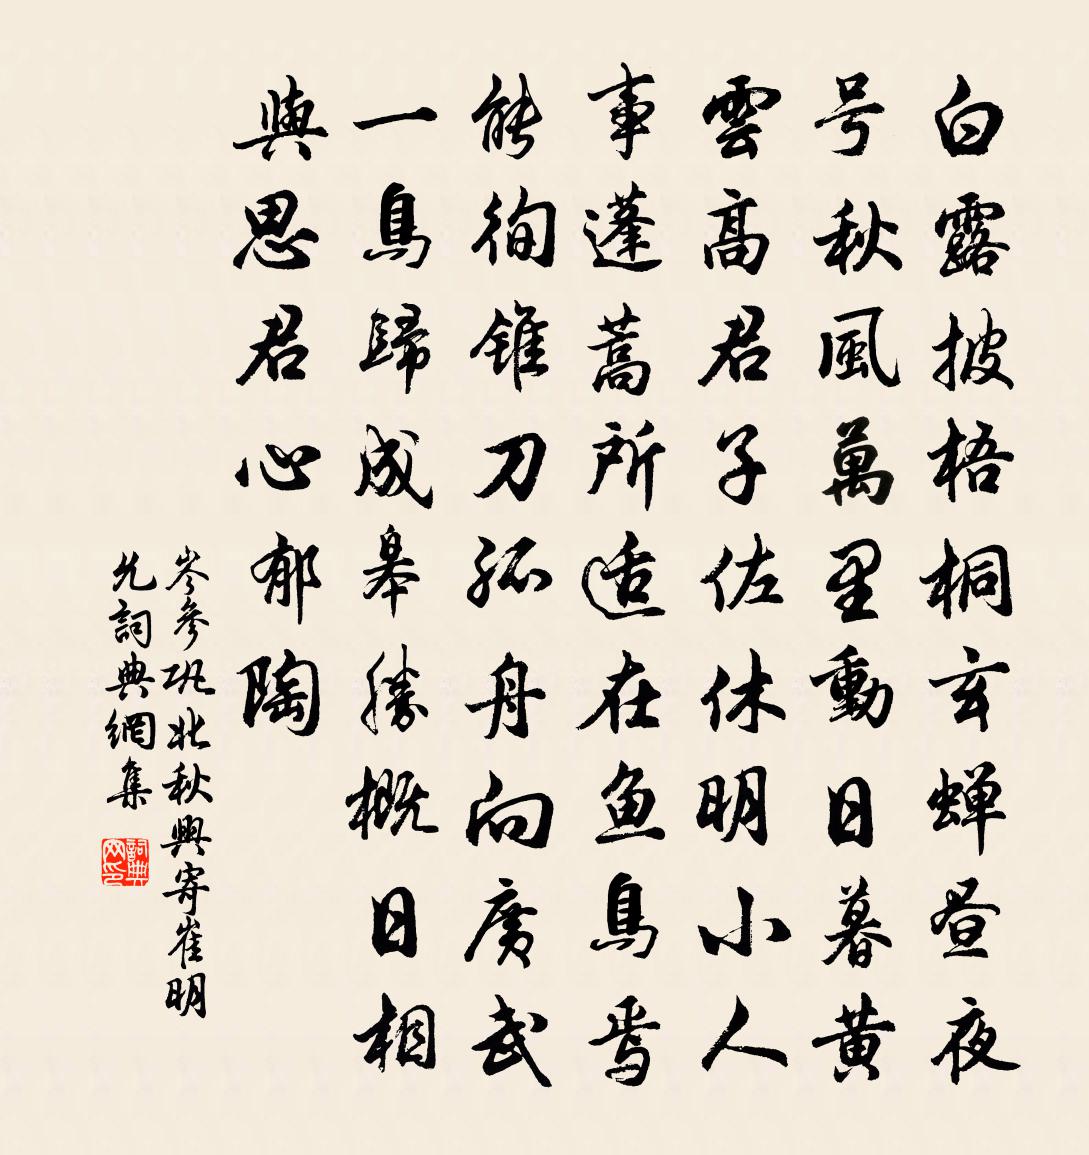 白露披梧桐玄蝉昼夜
号秋風萬里動日暮黄
雲高君子佐休明小人
事蓬蒿所适在鱼鳥焉
能徇錐刀孤舟向廣武
一鳥歸成皋勝概日相
與思君心郁陶
岑參巩北秋興寄崔明
允詞典網集
詞典网印